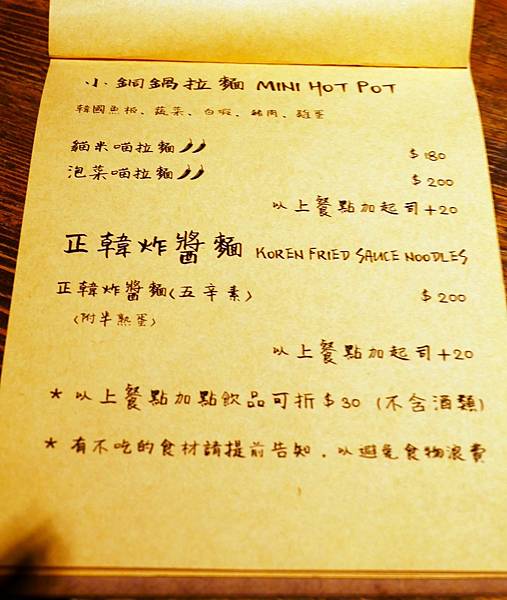 小銅鍋拉麵 MINI HOT POT
韓國魚板、蔬菜、白蝦、豬肉、雞蛋
貓米喵拉麵 $180
泡菜喵拉麵 $200
以上餐點加起司+20
正韓炸醬麵 KOREN FRIED SAUCE NOODLES
正韓炸醬麵(五辛素) $200
(附半熟蛋)
以上餐點加起司+20
* 以上餐點加點飲品可折$30 (不含酒類)
* 有不吃的食材請提前告知,以避免食物浪費